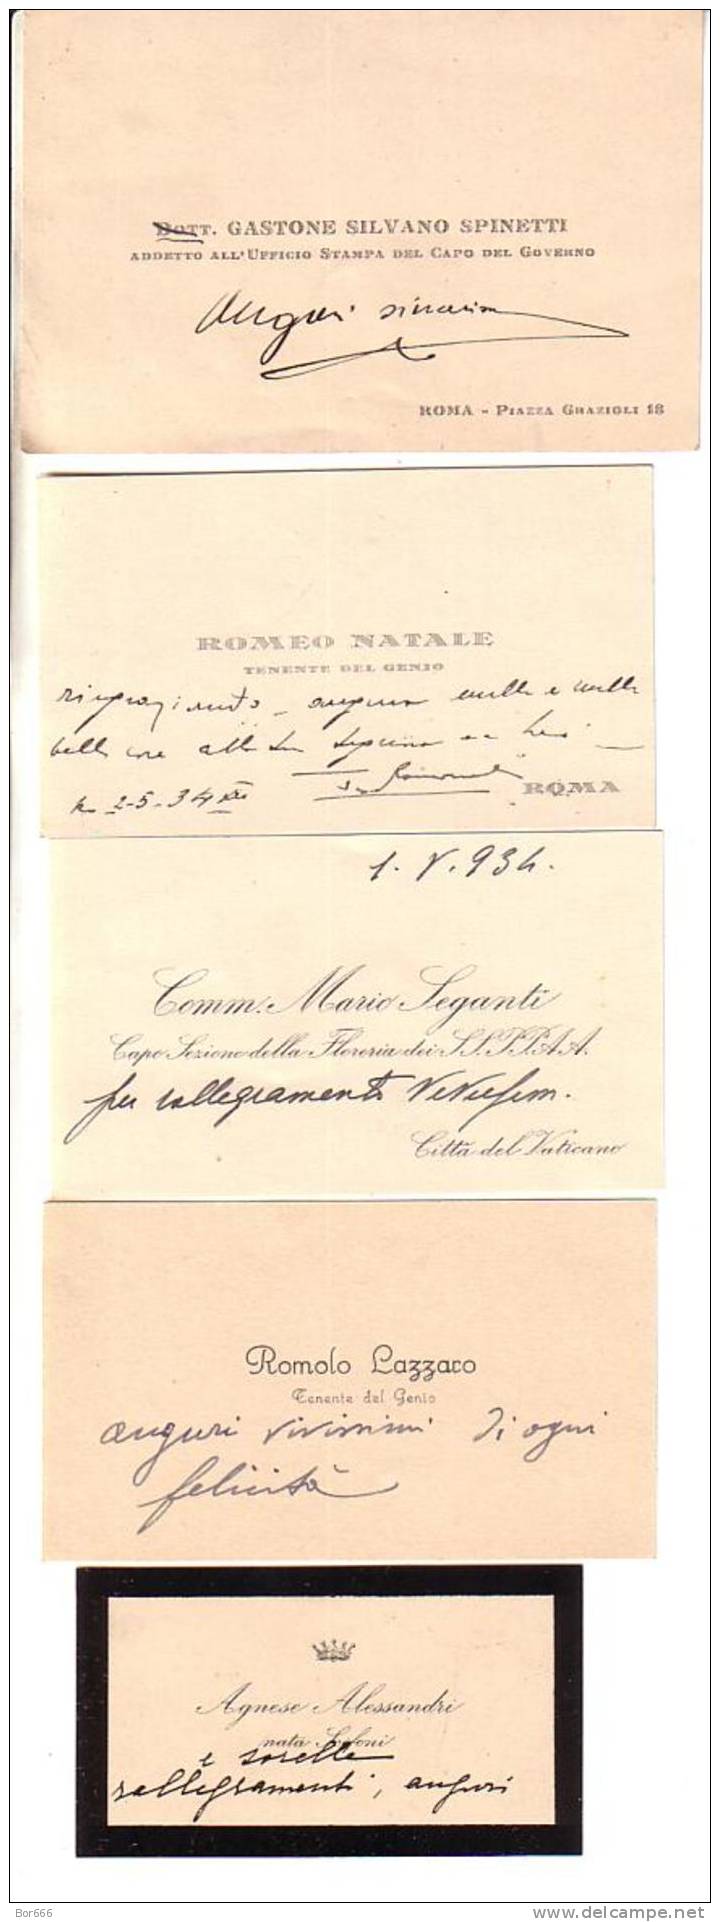 Dott. GASTONE SILVANO SPINETTI
ADDETTO ALL'UFFICIO STAMPA DEL CAPO DEL GOVERNO
Auguri
ROMA - PIAZZA GRAZIOLI 18
ROMEO NATALE
TENENTE DEL GENIO
ringraziando mille e mille
belle cose alla
2-5-34 XII
ROMA
1. V. 934.
Comm. Mario Seganti
Capo Sezione della Floreria dei SS.PP.AA.
per rallegramenti vivissim.
Città del Vaticano
Romolo Lazzaro
Tenente del Genio
auguri vivissimi di ogni
felicità
Agnese Alessandri
nata
e sorelle
rallegramenti, auguri
Bor666
delcampe.net